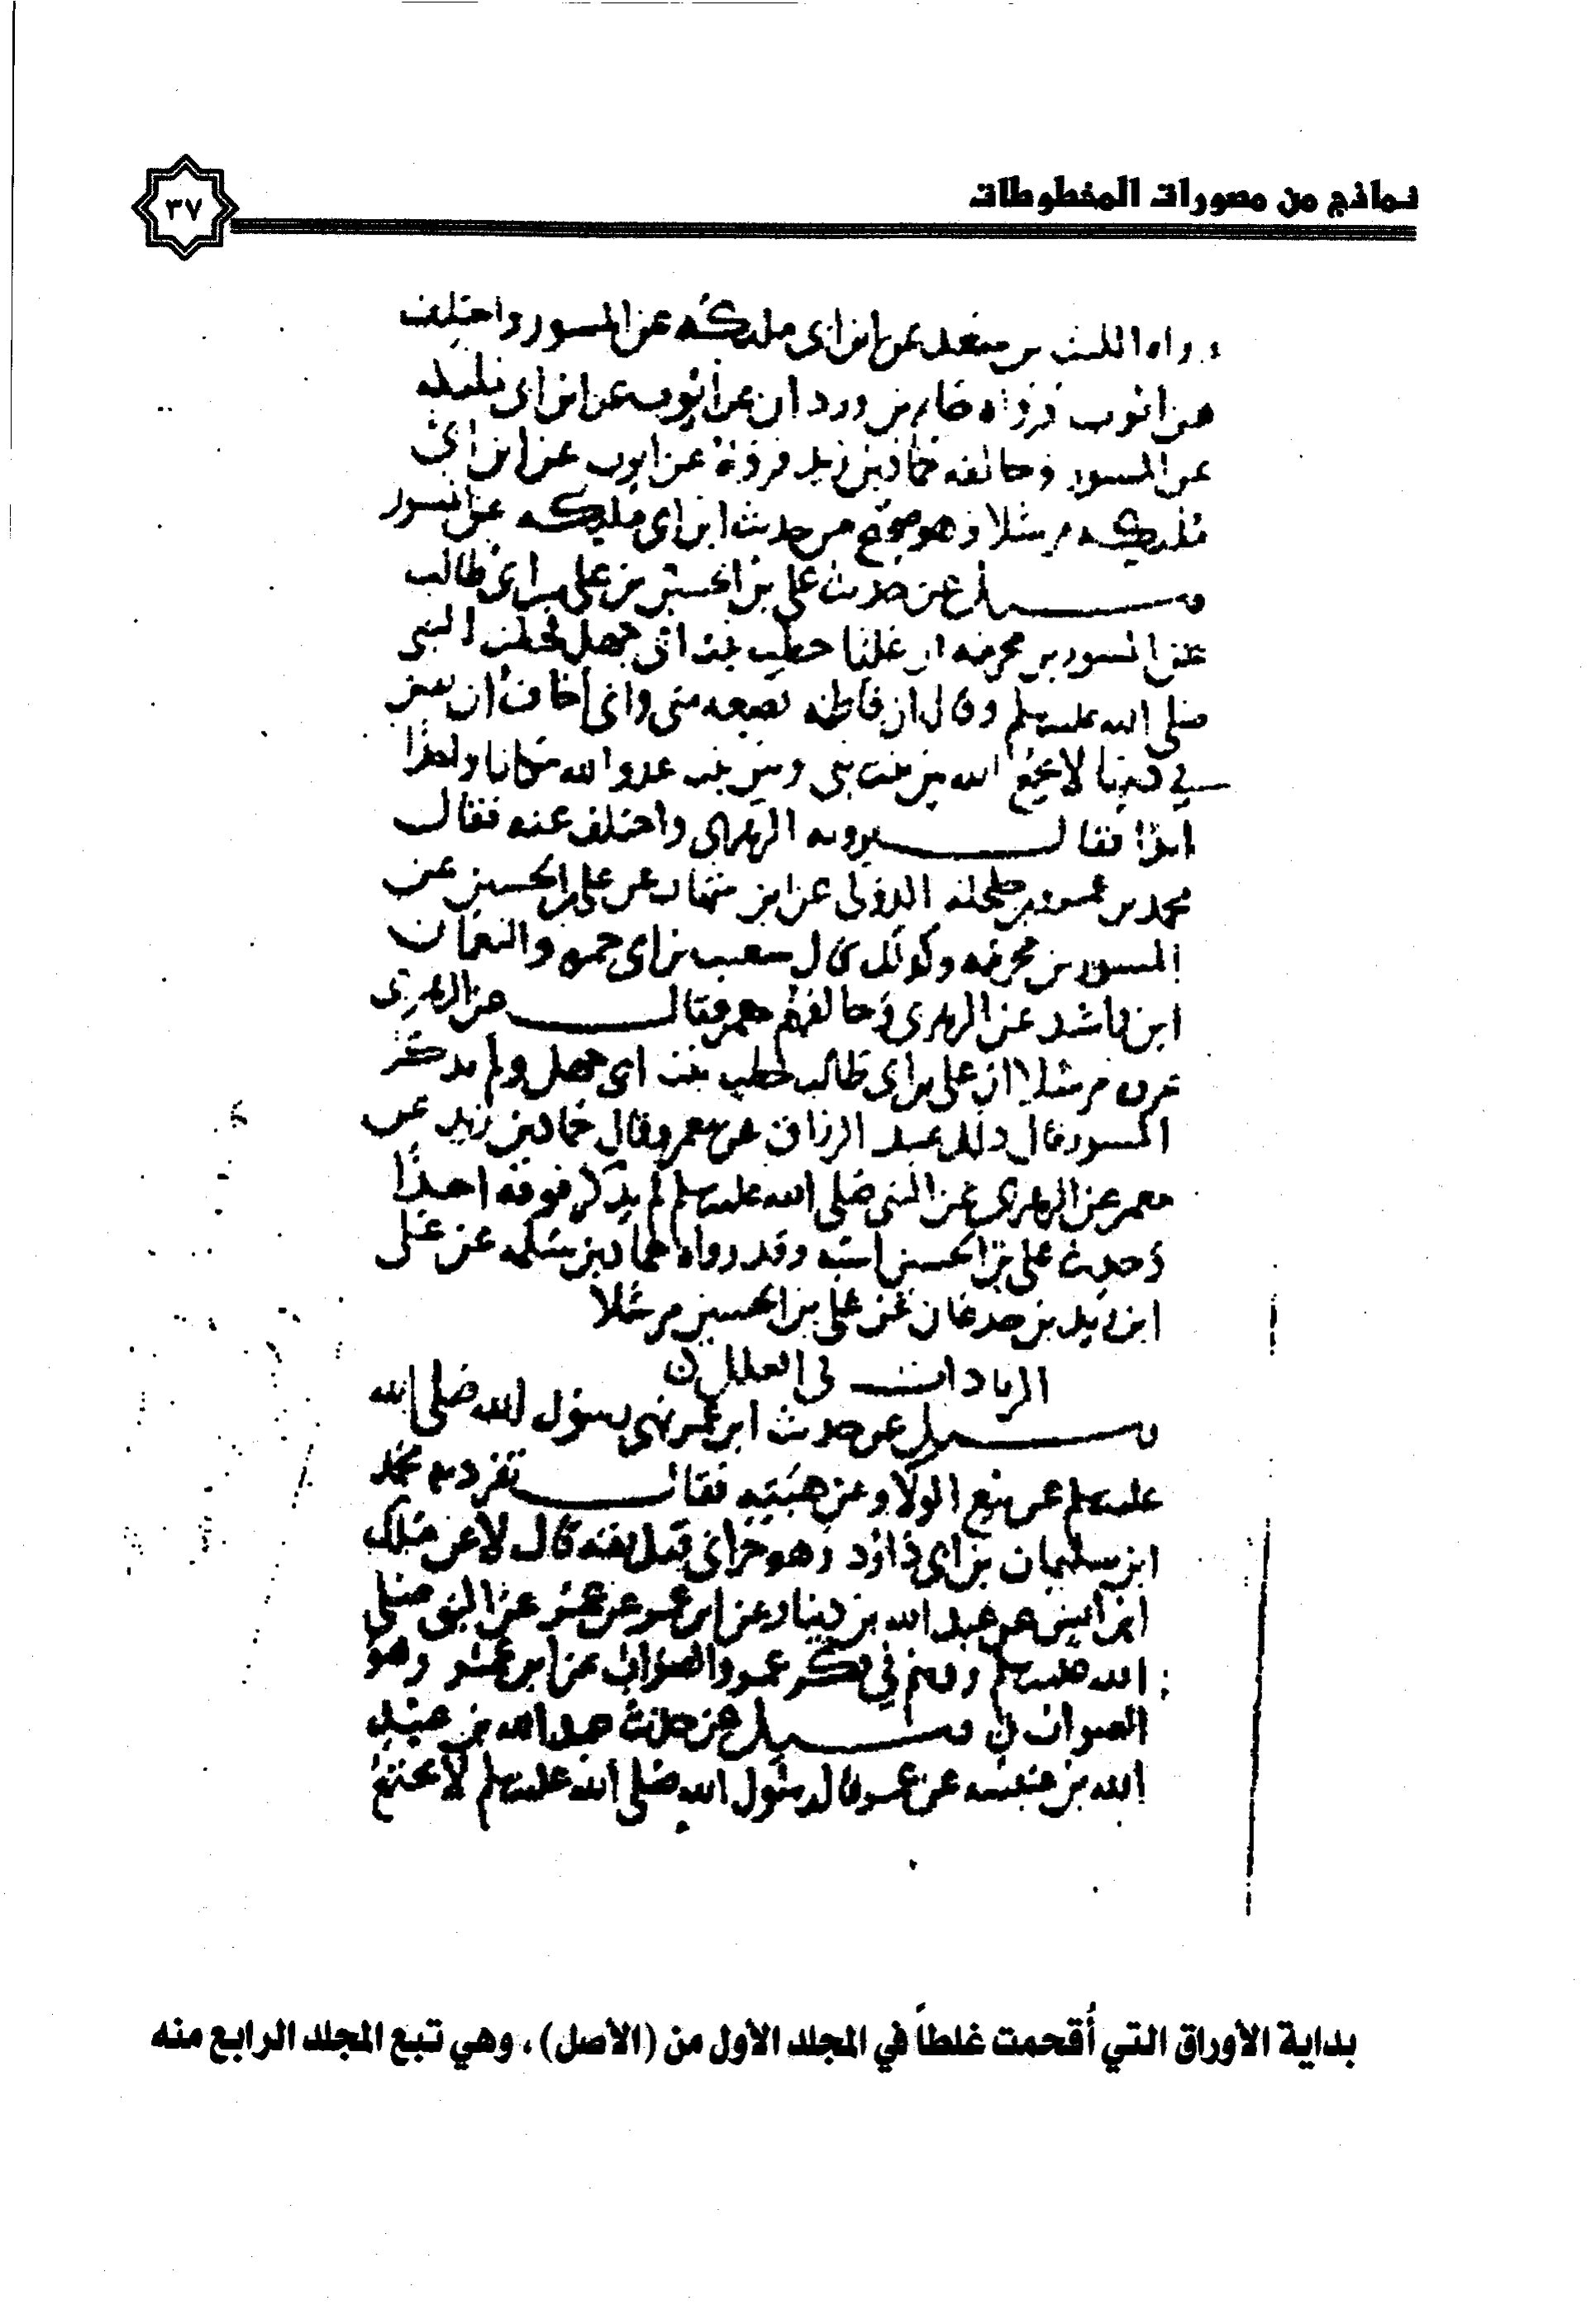 نماذج من مصورات المخطوطات
٣٧
رواه الليث بن سعد عن ابن ابى مليكه عن المسور واختلف
عن ايوب فرواه حاتم بن وردان عن ايوب عن ابن ابى مليكه
عن المسور وخالفه حماد بن زيد فرواه عن ايوب عن ابن ابى
مليكه مرسلا وهو صحيح من حديث ابن ابى مليكه عن المسور
وسيل عن حديث على بن الحسين بن على بن ابى طالب
عن المسور بن مخرمه ان عليا خطب بنت ابى جهل فخطب النبى
صلى الله عليه وسلم وقال ان فاطمه بضعه منى وانى اخاف ان تفتن
فى دينها لا يجمع الله بين بنت نبى وبين بنت عدو الله مكانا واحدا
ابدا فقال يرويه الزهرى واختلف عنه فقال
محمد بن عمرو بن حلحله الدؤلى عن ابن شهاب عن على بن الحسين عن
المسور بن مخرمه وكذلك قال شعيب بن ابى حمزه والنعمان
ابن راشد عن الزهرى وخالفهم معمر فقال عن الزهرى
عن مرسلا ان على بن ابى طالب خطب بنت ابى جهل ولم يذكر
المسور قال ذلك عبد الرزاق عن معمر وقال حماد بن زيد عن
معمر عن الزهرى عن النبى صلى الله عليه وسلم لم يذكر فوقه احدا
وحديث على بن الحسين اشبه وقد رواه حماد بن سلمه عن على
ابن زيد بن جدعان عن على بن الحسين مرسلا
الزيادات فى العلل
وسيل عن حديث ابن عمر نهى رسول الله صلى الله
عليه وسلم عن بيع الولاء وعن هبته فقال تفرد به محمد
ابن سليمان بن ابى داود وهو حرانى قيل ثقه قال لا عن مالك
ابن انس عن عبد الله بن دينار عن ابن عمر عن عمر عن النبى صلى
الله عليه وسلم ووهم فى ذكر عمر والصواب عن ابن عمر وهو
الصواب وسيل عن حديث عبد الله بن عبيد
الله بن عن عمر قال رسول الله صلى الله عليه وسلم لا يجتمع
بداية الأوراق التي أُقحمت غلطاً في المجلد الأول من (الأصل)، وهي تبع المجلد الرابع منه